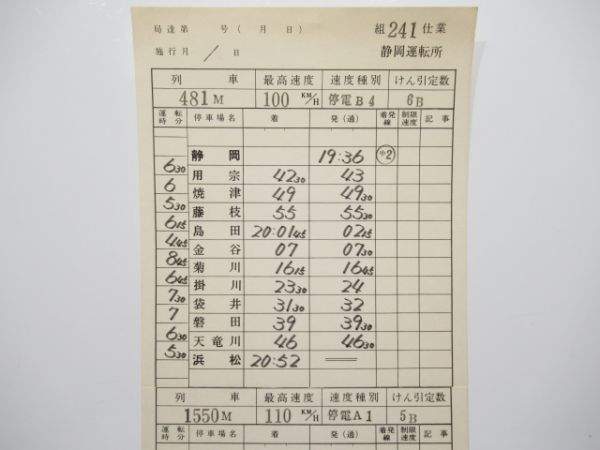 局達第 号(月 日) 組 241 仕業
施行月 / 日 静岡運転所
列車 最高速度 速度種別 けん引定数
481M 100 KM/H 停電B4 6B
運転時分 停車場名 着 発(通) 着発線 制限速度 記事
静岡 19:36 中2
630
用宗 4230 43
6
焼津 49 4930
530
藤枝 55 5530
615
島田 20:0145 0215
445
金谷 07 0730
845
菊川 1615 1645
645
掛川 2330 24
730
袋井 3130 32
7
磐田 39 3930
630
天竜川 46 4630
530
浜松 20:52
列車 最高速度 速度種別 けん引定数
1550M 110 KM/H 停電A1 5B
運転時分 停車場名 着 発(通) 着発線 制限速度 記事